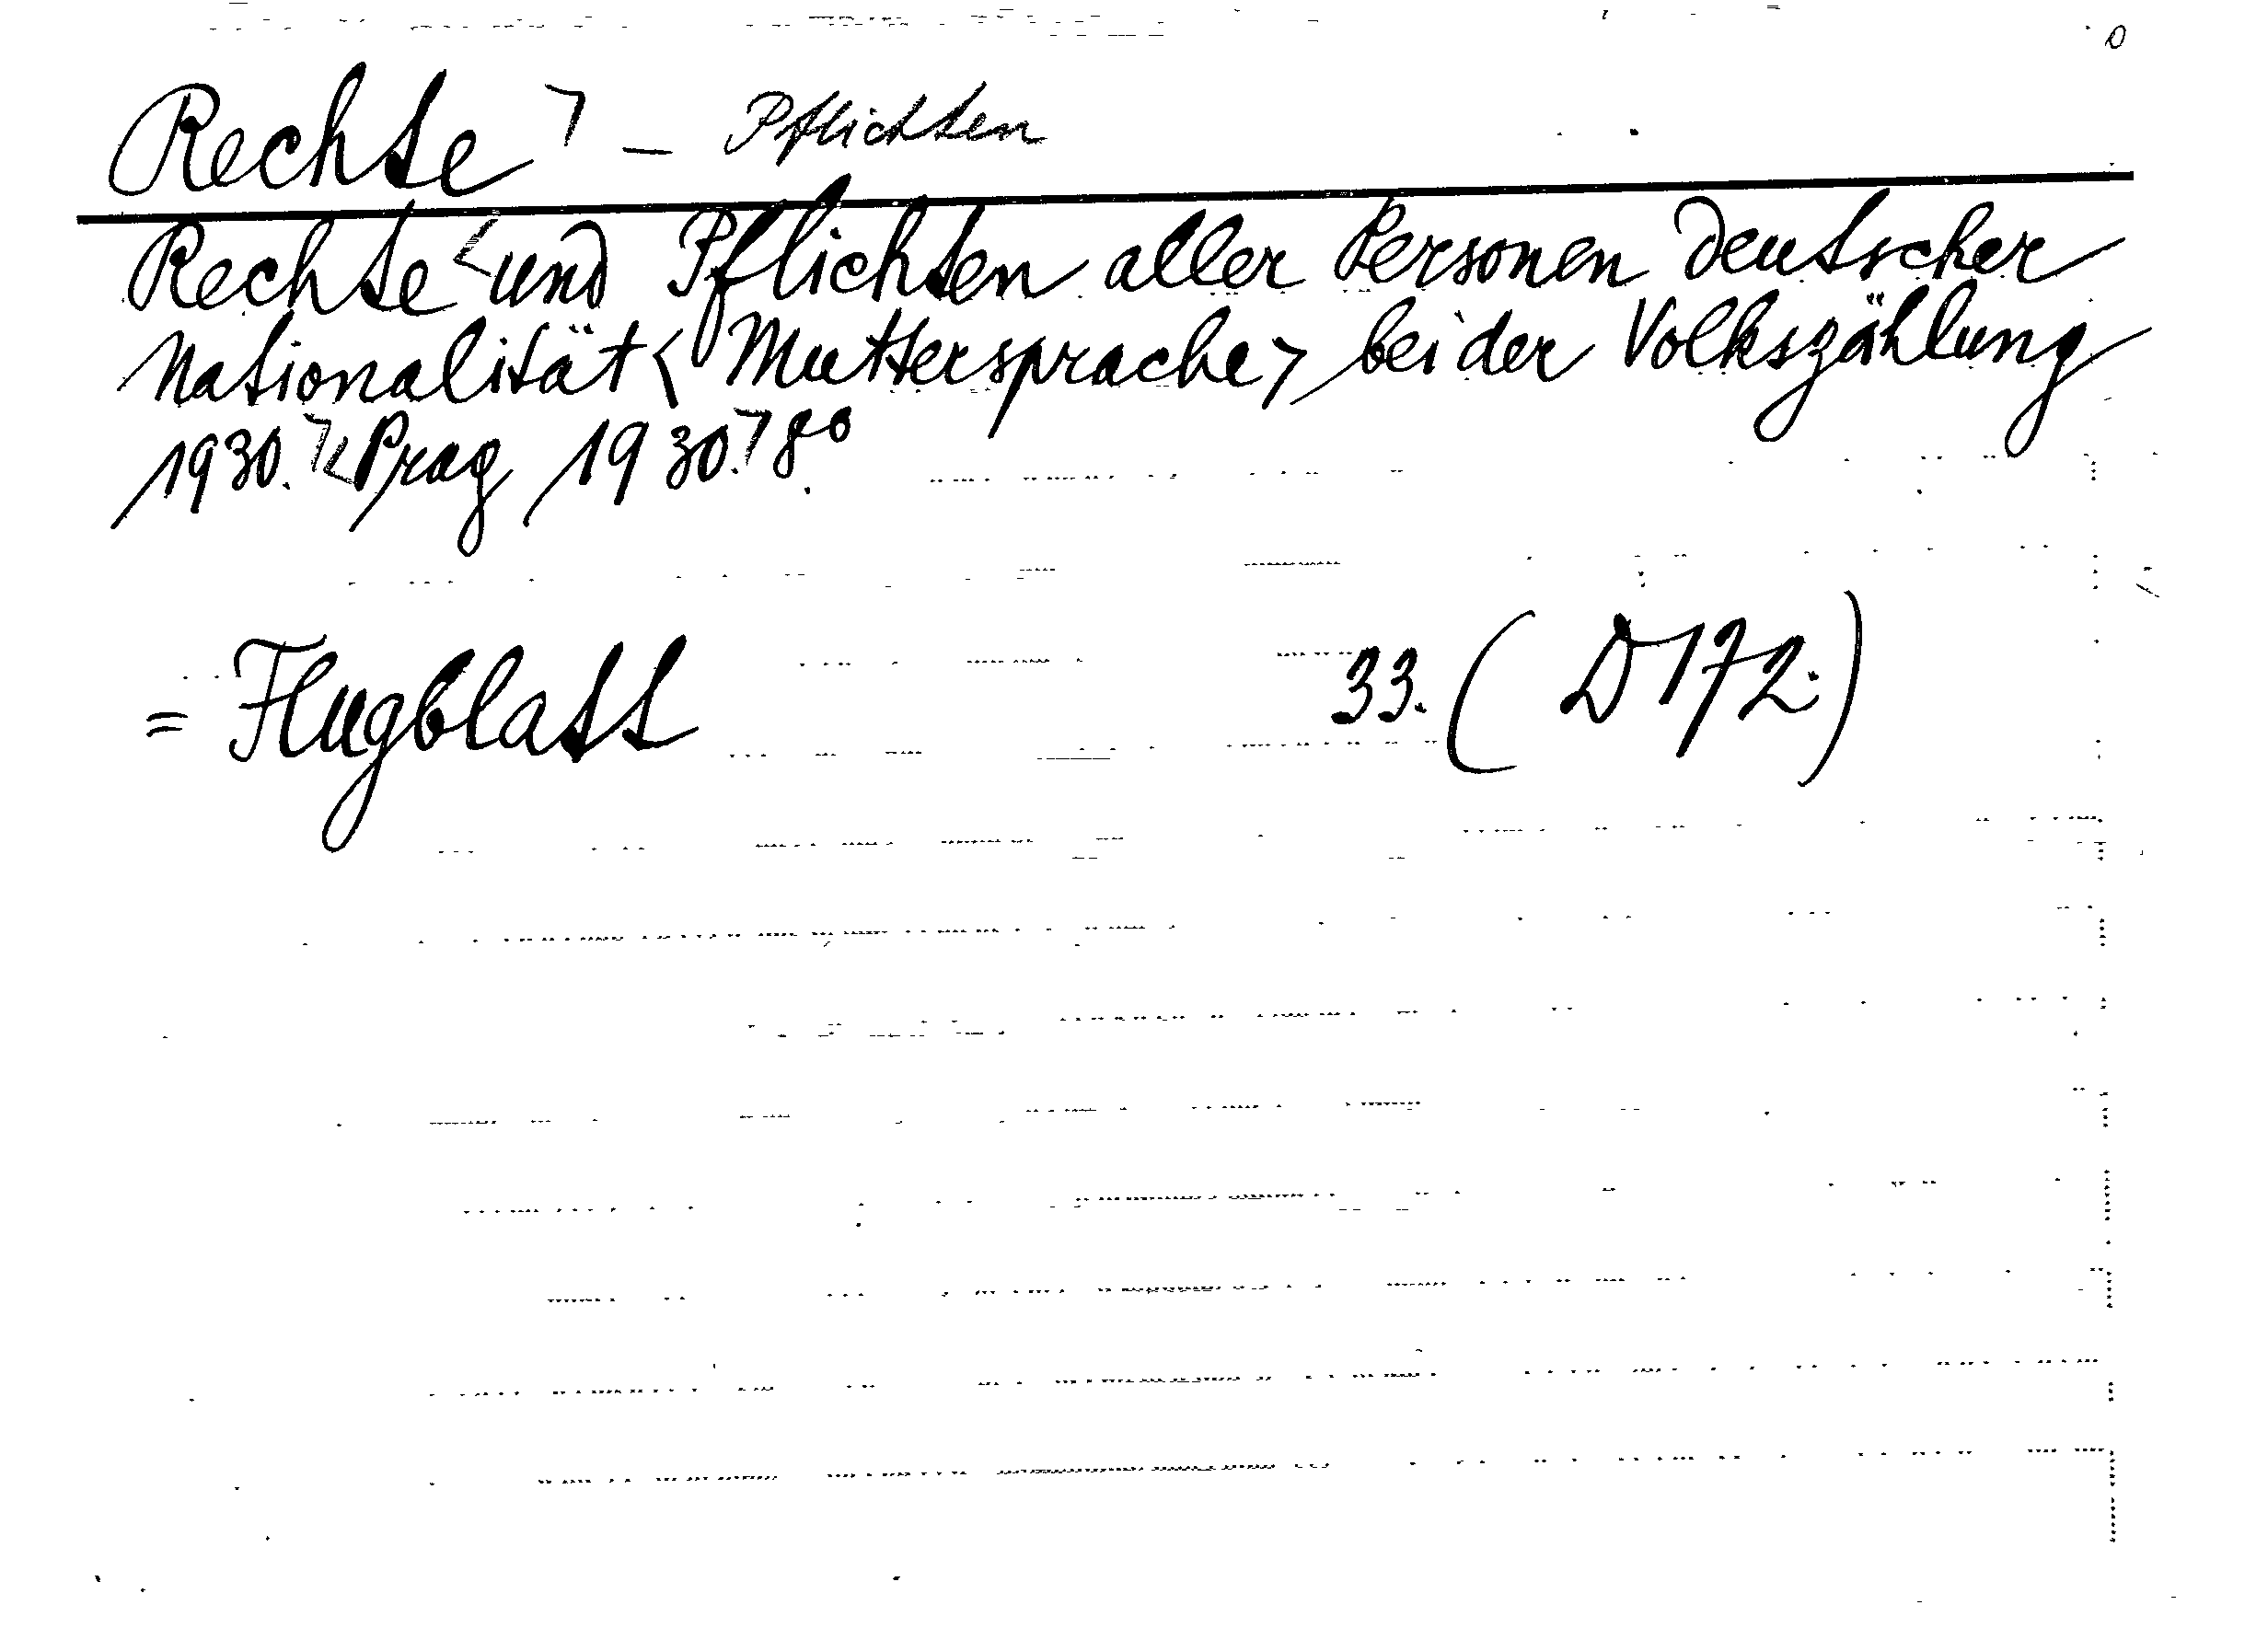 Rechte > – Pflichten
Rechte < und Pflichten aller Personen deutscher
Nationalität < Muttersprache > bei der Volkszählung
1930. > < Prag 1930. > 8°.
= Flugblatt 33. ( D 172. )